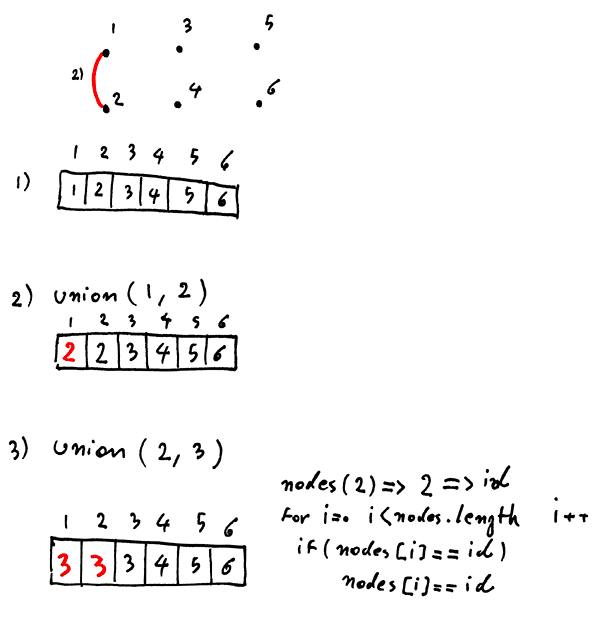 1 3 5
2)
2 4 6
1 2 3 4 5 6
1) 1 2 3 4 5 6
2) union (1, 2)
1 2 3 4 5 6
2 2 3 4 5 6
3) union (2, 3)
1 2 3 4 5 6
3 3 3 4 5 6
nodes(2) => 2 => id
For i=0 i<nodes.length i++
if (nodes[i]==id)
nodes[i]==id